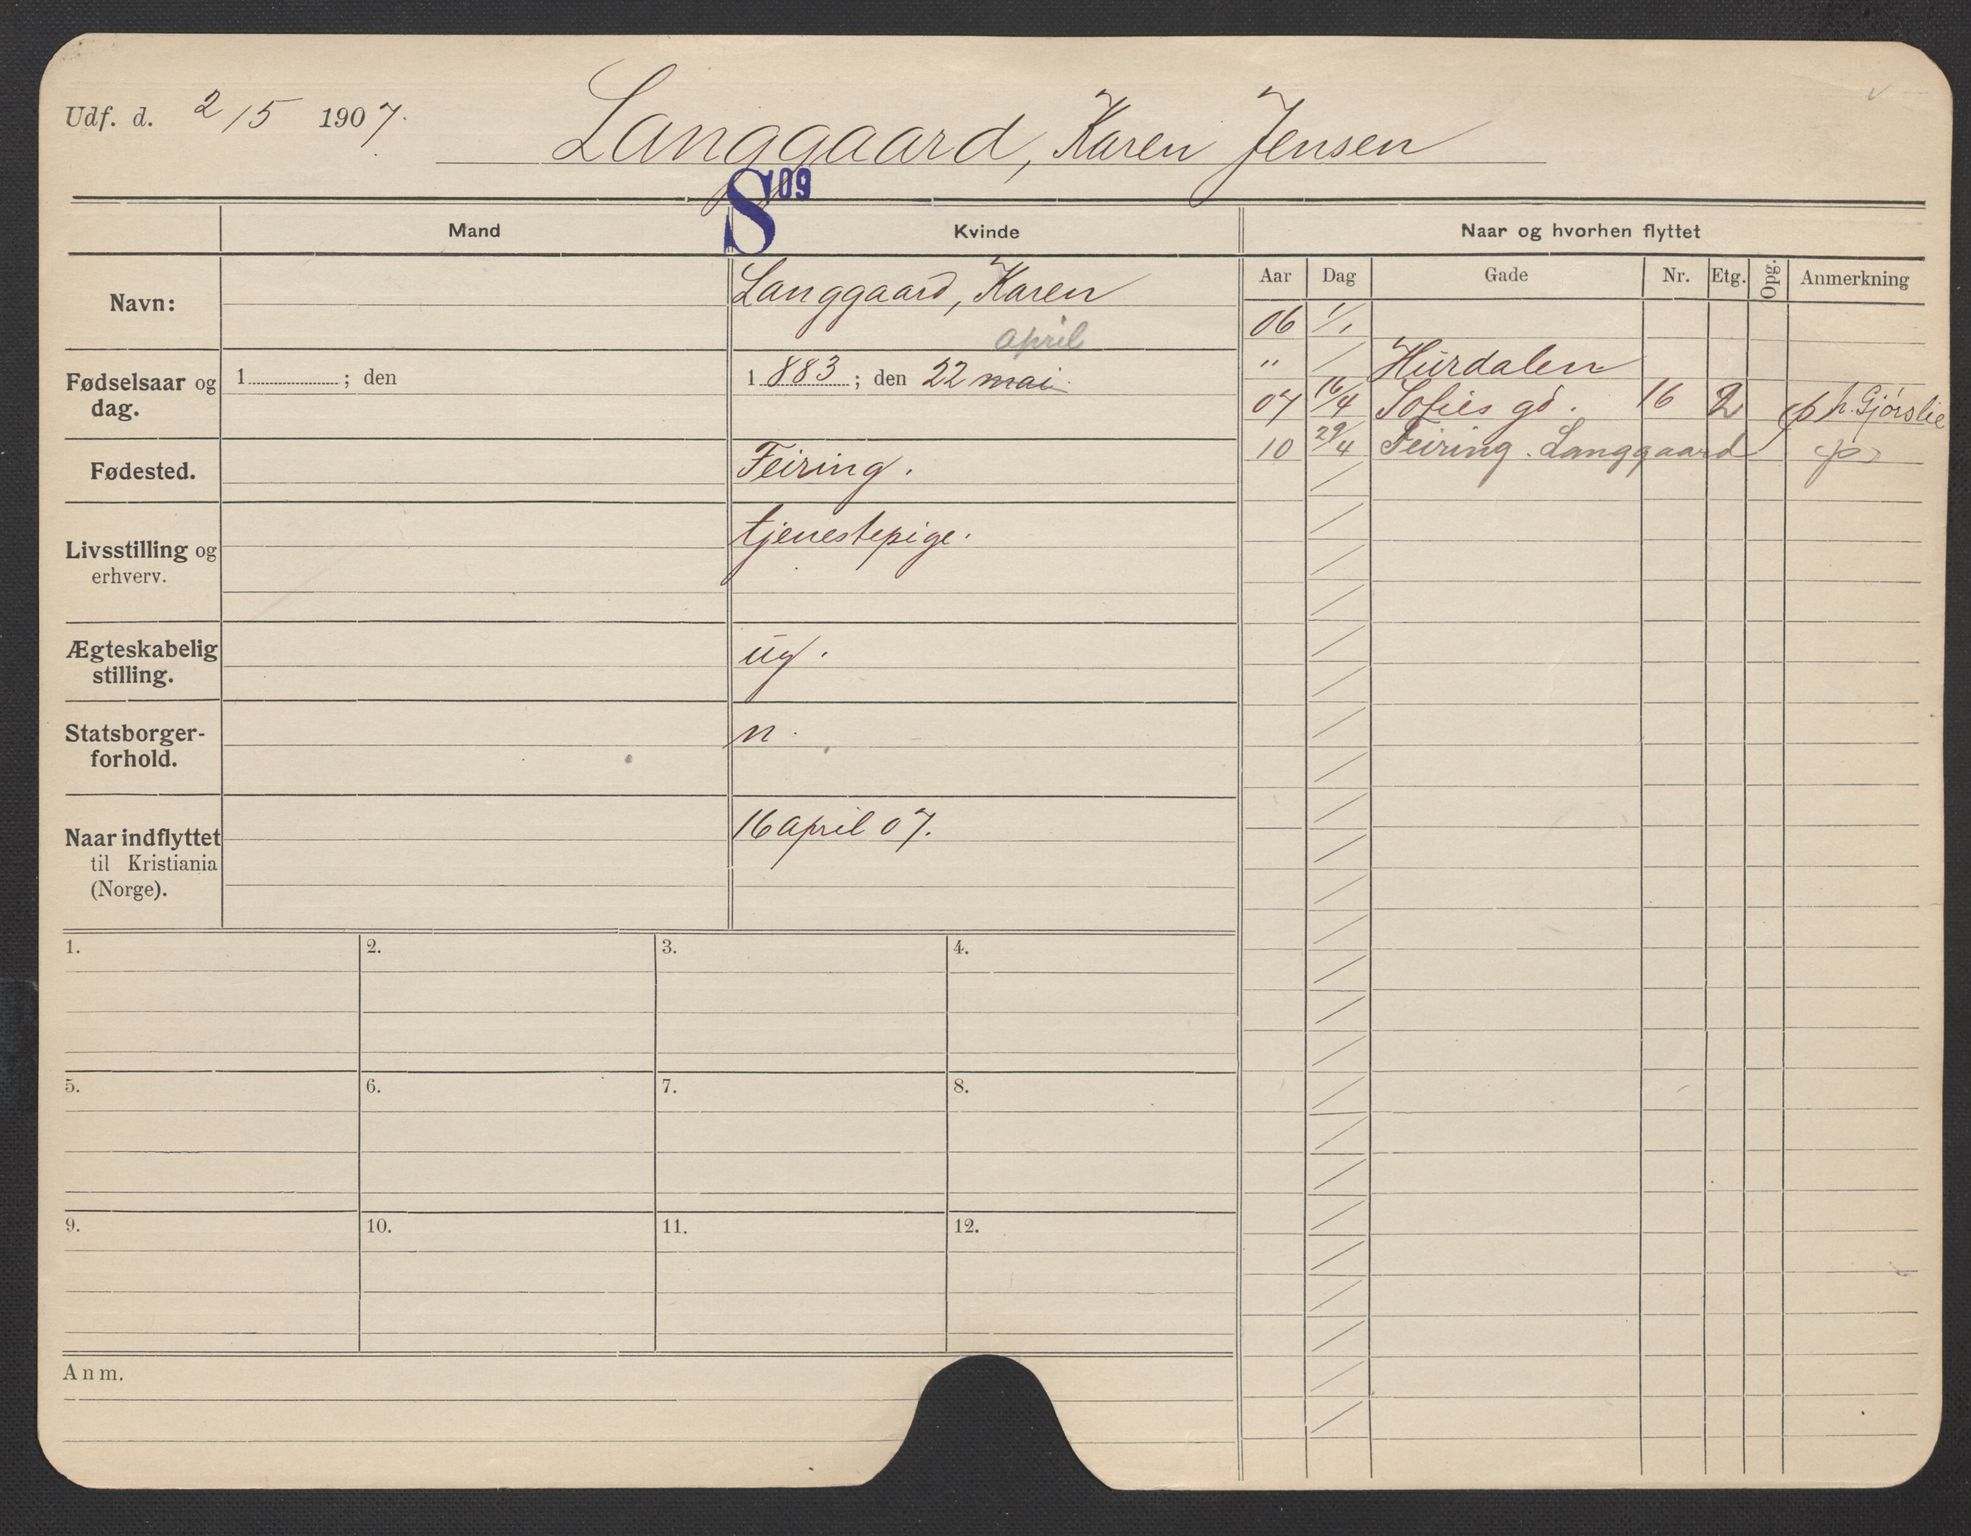 Udf. d. 2/5 1907. Langgaard, Karen Jensen
S 09
Mand Kvinde Naar og hvorhen flyttet
Aar Dag Gade Nr. Etg. Opg. Anmerkning
Navn: Langgaard, Karen
april
Fødselsaar og dag. 1 ; den 1 883 ; den 22 mai
Fødested. Feiring.
Livsstilling og erhverv. tjenestepige.
Ægteskabelig stilling. ug.
Statsborgerforhold. n.
Naar indflyttet til Kristiania (Norge). 16 april 07.
06 1/1
" / Hurdalen
07 16/4 Sofies gd. 16 2 h. Gjørslie
10 29/4 Feiring. Langgaard
1. 2. 3. 4.
5. 6. 7. 8.
9. 10. 11. 12.
Anm.